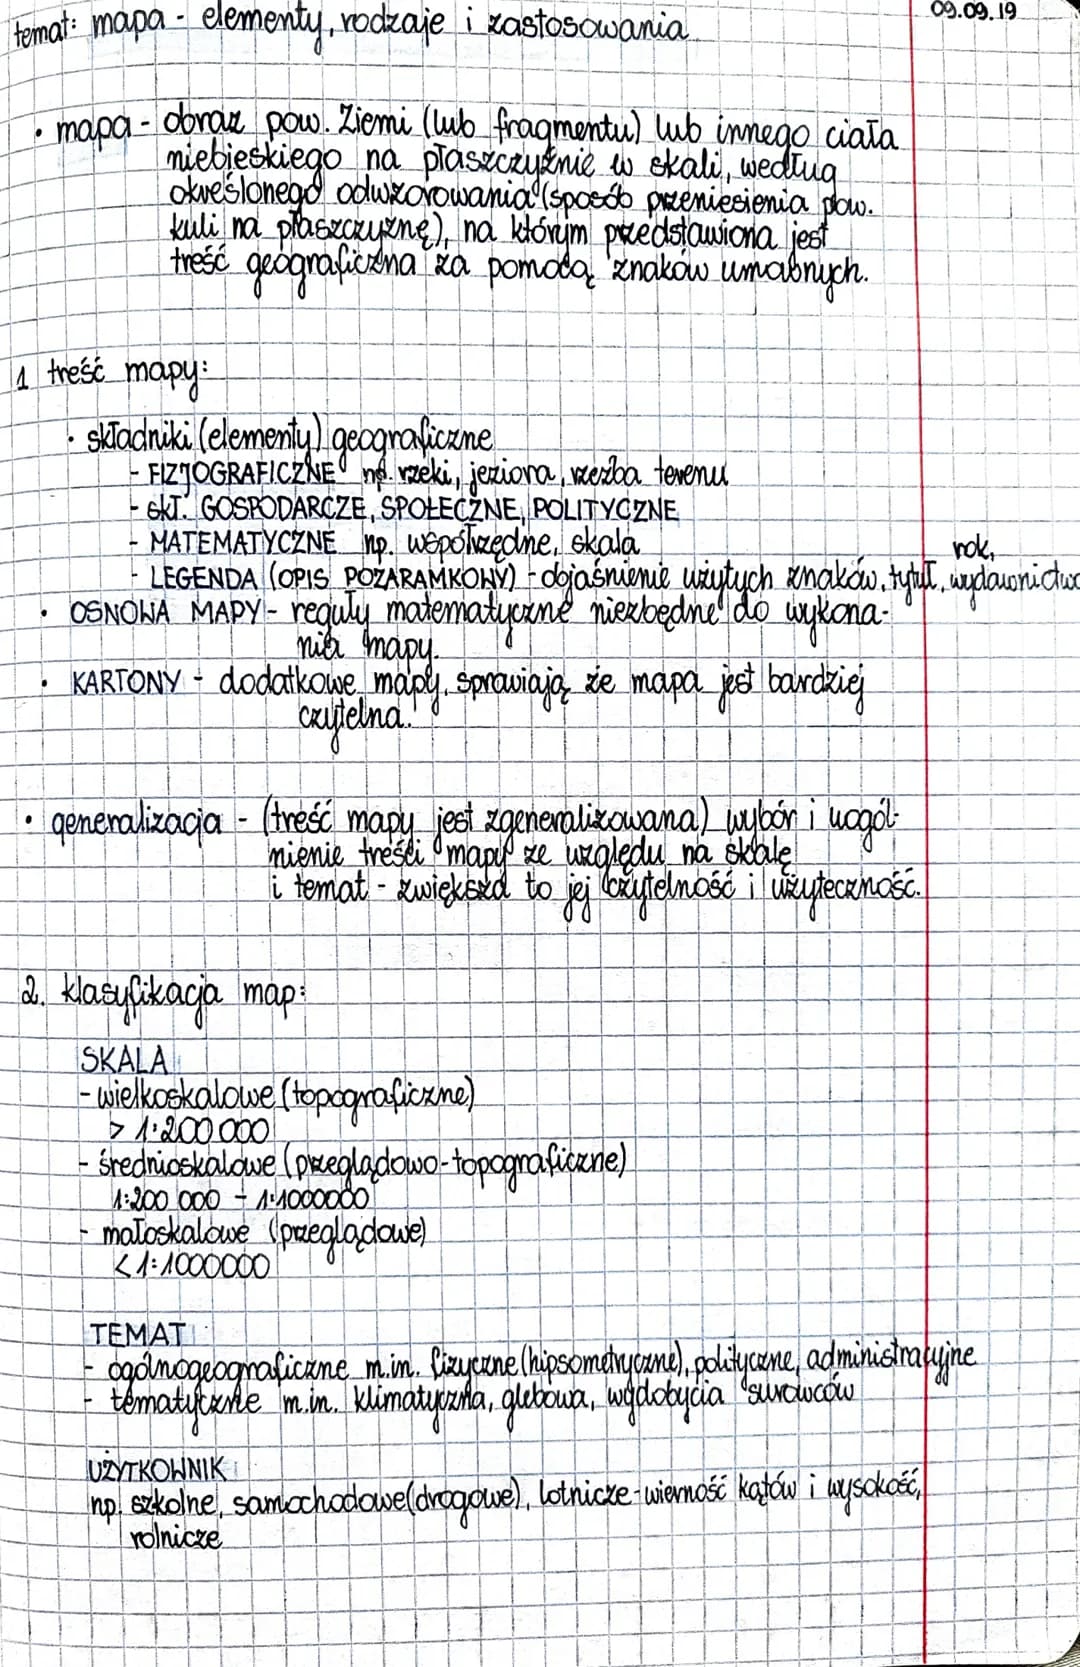 09.09.19
temat: mapa - elementy, rodzaje i zastosowania
• mapa - obraz pow. Ziemi (lub fragmentu) lub innego ciała
niebieskiego na płaszczyźnie w skali, według
określonego odwzorowania (sposób przeniesienia pow.
kuli na płaszczyznę), na którym przedstawiona jest
treść geograficzna za pomocą znaków umabnych.
1 treść mapy:
• składniki (elementy) geograficzne
- FIZJOGRAFICZNE np. rzeki, jeziora, rzeźba terenu
- skł. GOSPODARCZE, SPOŁECZNE, POLITYCZNE
- MATEMATYCZNE np. współrzędne, skala
rok,
- LEGENDA (OPIS POZARAMKOWY) - dojaśnienie użytych znaków, tytuł, wydawnictwo
• OSNOWA MAPY - reguły matematyczne niezbędne do wykona-
nia mapy.
• KARTONY - dodatkowe mapy, sprawiają że mapa jest bardziej
czytelna.
• generalizacja - (treść mapy jest zgeneralizowana) wybór i uogól-
nienie treści mapy ze względu na skalę
i temat - zwiększa to jej czytelność i użyteczność.
2. klasyfikacja map:
SKALA
- wielkoskalowe (topograficzne)
> 1:200 000
- średnioskalowe (przeglądowo-topograficzne)
1:200 000 - 1:1000000
- małoskalowe (przeglądowe)
< 1:1000000
TEMAT
- ogólnogeograficzne m.in. fizyczne (hipsometryczne), polityczne, administracyjne
- tematyczne m.in. klimatyczna, glebowa, wydobycia surowców
UŻYTKOWNIK
np. szkolne, samochodowe (drogowe), lotnicze - wierność kątów i wysokość,
rolnicze